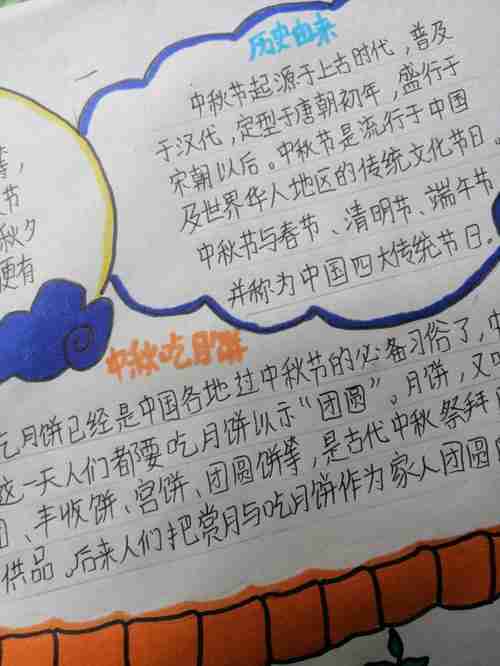 历史由来
中秋节起源于上古时代，普及
于汉代，定型于唐朝初年，盛行于
宋朝以后。中秋节是流行于中国
及世界华人地区的传统文化节日。
中秋节与春节、清明节、端午节
并称为中国四大传统节日。
等，
节
秋夕
便有
中秋吃月饼
吃月饼已经是中国各地过中秋节的必备习俗了，中
这一天人们都要吃月饼以示“团圆”。月饼，又叫
、丰收饼、宫饼、团圆饼等，是古代中秋祭拜
供品。后来人们把赏月与吃月饼作为家人团圆